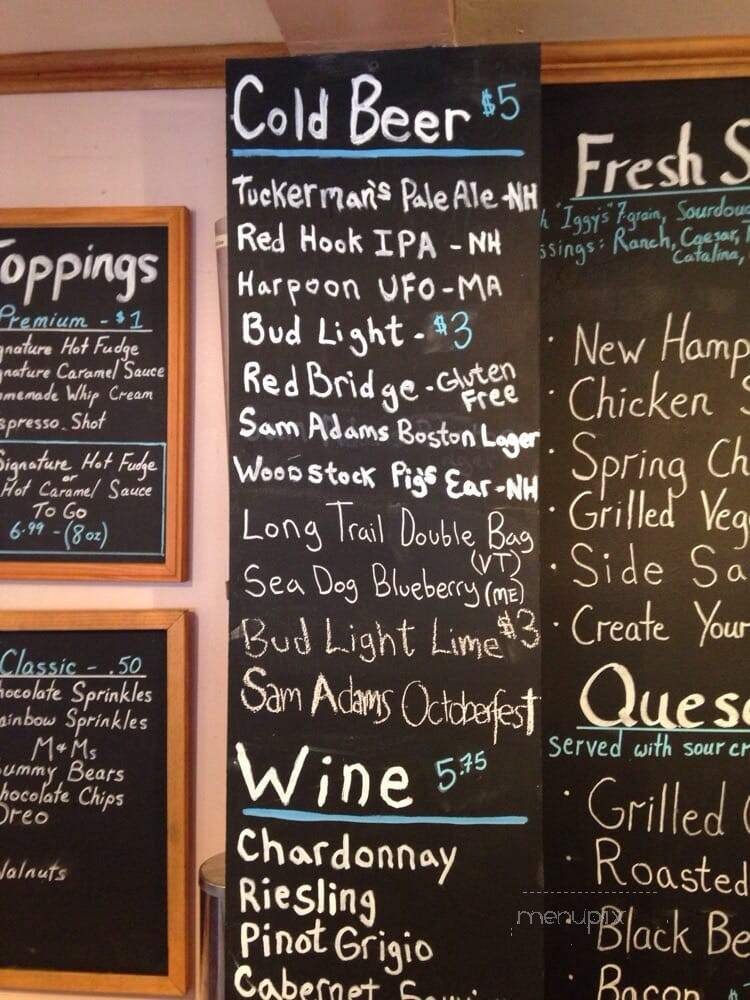 Toppings
Premium - $1
Hot Fudge
Caramel Sauce
Whip Cream
Shot
Signature Hot Fudge
or
Hot Caramel Sauce
To Go
6.99 - (8oz)
Classic - .50
Sprinkles
Sprinkles
M&Ms
Bears
Chips
Oreo
Cold Beer $5
Tuckerman's Pale Ale -NH
Red Hook IPA - NH
Harpoon UFO-MA
Bud Light - $3
Red Bridge - Gluten
Free
Sam Adams Boston Lager
Woodstock Pigs Ear -NH
Long Trail Double Bag
(VT)
Sea Dog Blueberry (ME)
Bud Light Lime $3
Sam Adams Octoberfest
Wine 5.75
Chardonnay
Riesling
Pinot Grigio
Cabernet
Fresh
"Iggy's" 7-grain,
Ranch, Caesar,
Catalina,
· New
· Chicken
· Spring
· Grilled
· Side
· Create Your
served with sour
· Grilled
· Roasted
· Black
· Bacon
menupix